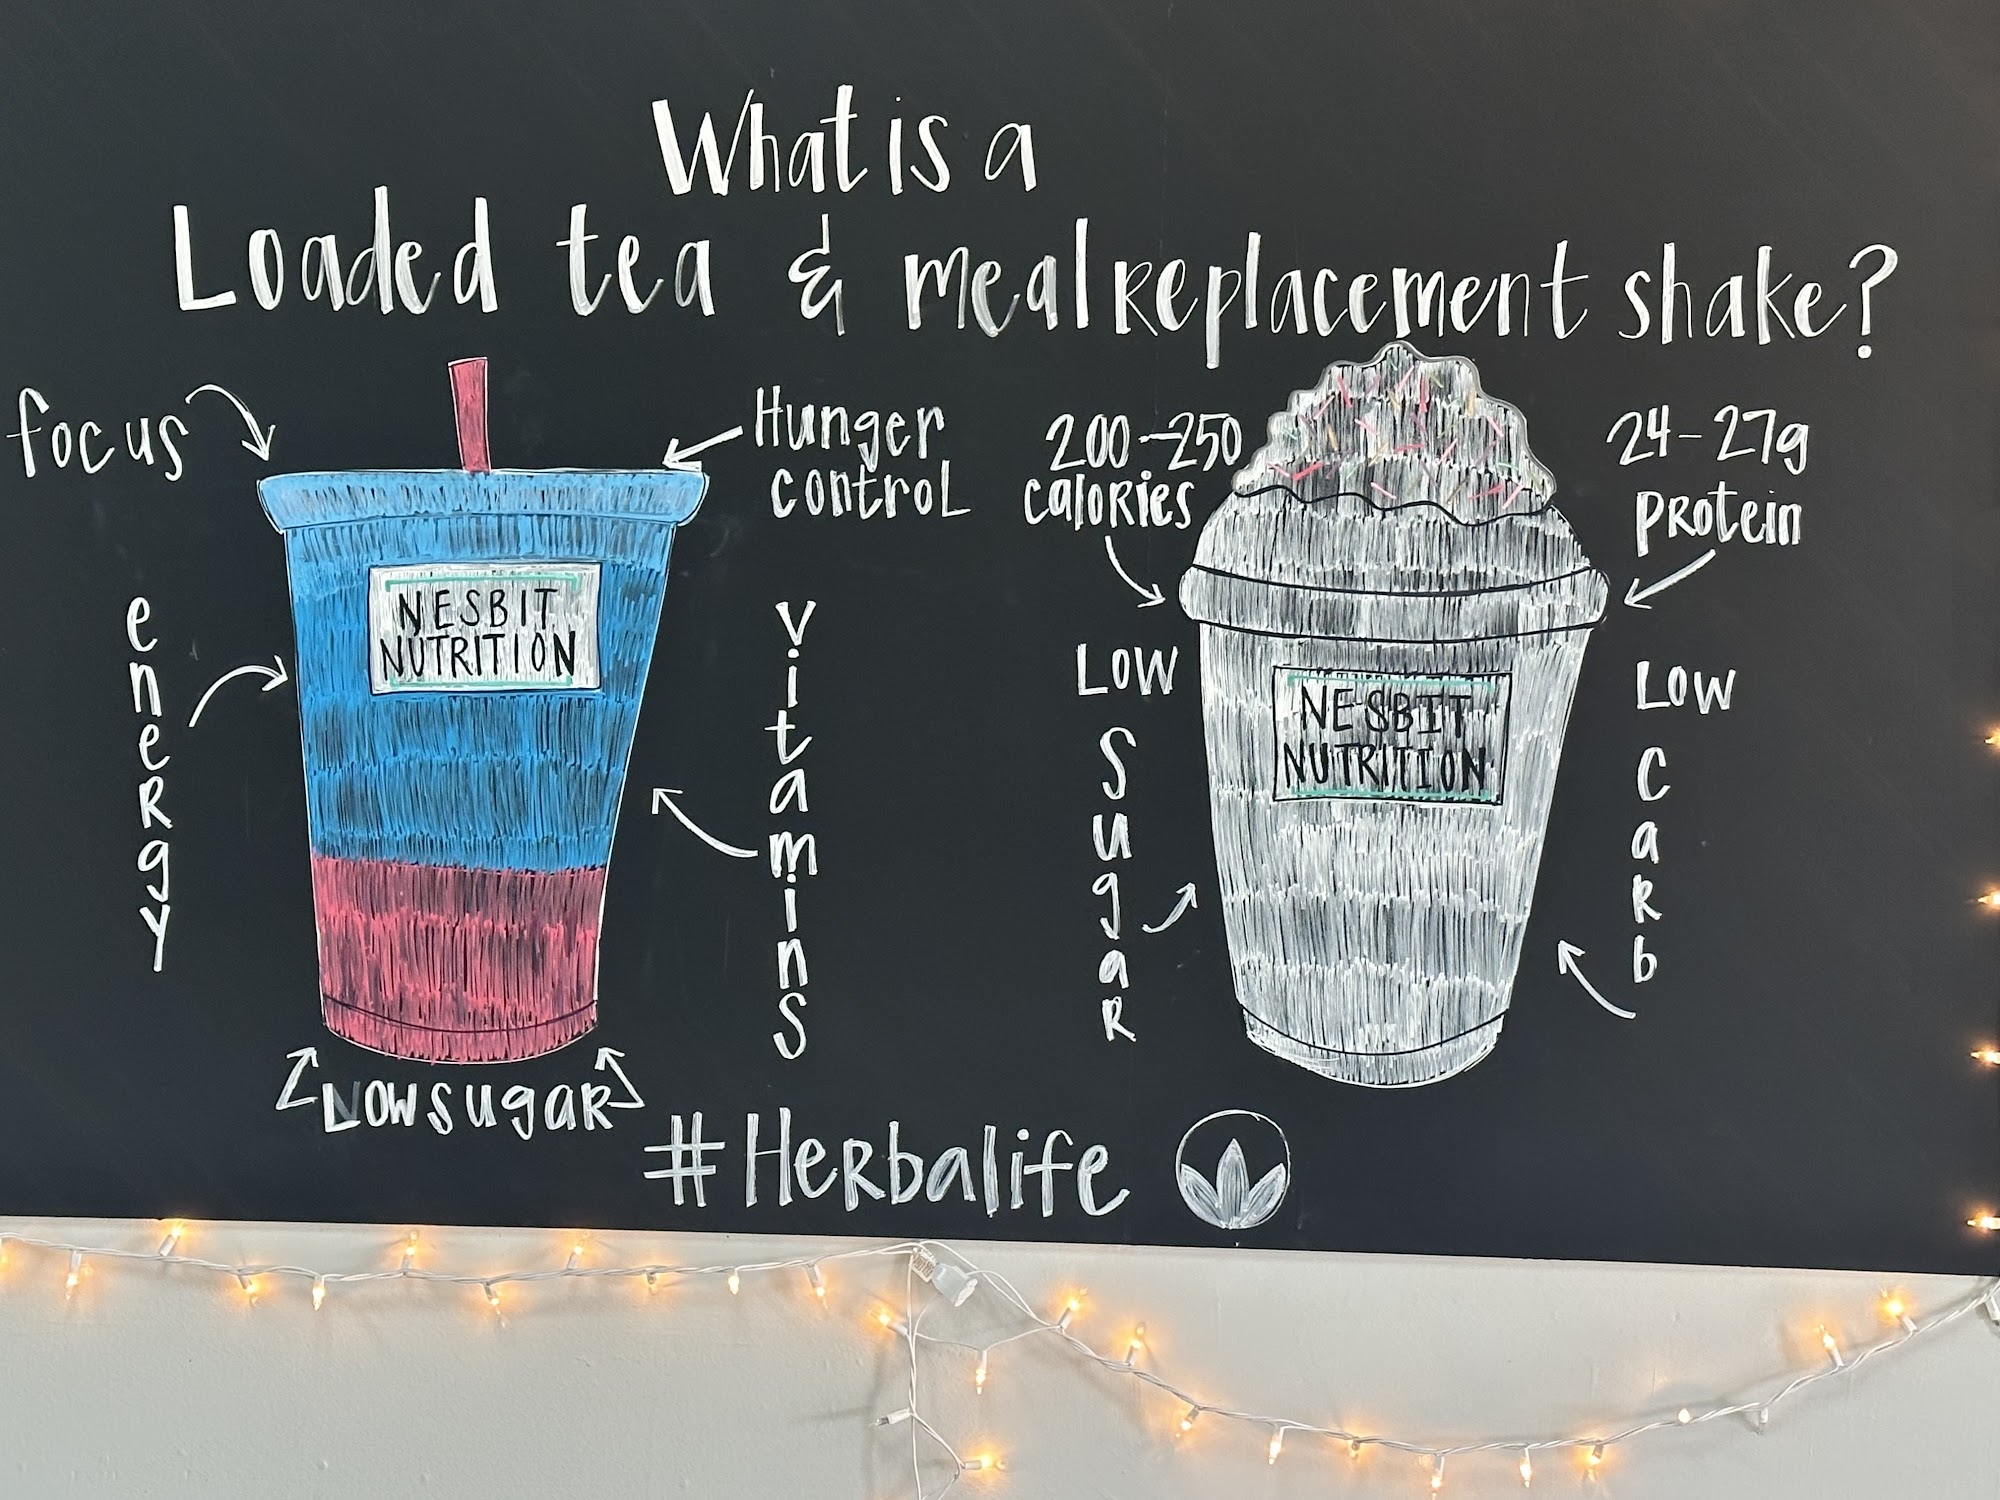 What is a
Loaded tea & meal replacement shake?
focus
Hunger
control
energy
vitamins
NESBIT
NUTRITION
Low sugar
200-250
calories
24-27g
protein
Low
Sugar
Low
Carb
NESBIT
NUTRITION
#Herbalife